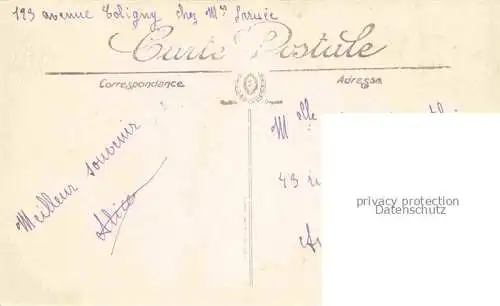 193 avenue Coligny chez Mme
Carte Postale
Correspondance
Adresse
Meilleur souvenir
Alice
Mlle
43
privacy protection
Datenschutz